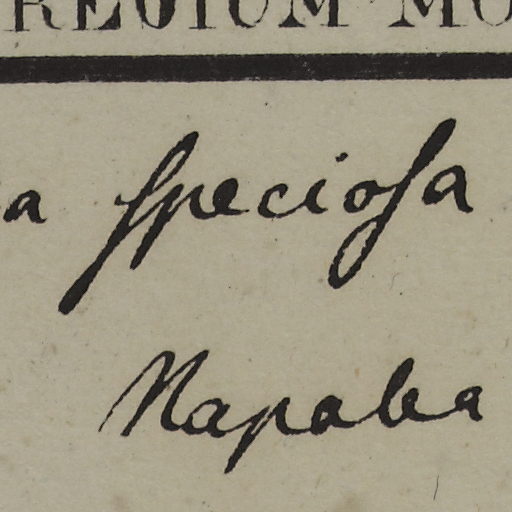 REGIUM MO
a speciosa
Napalea